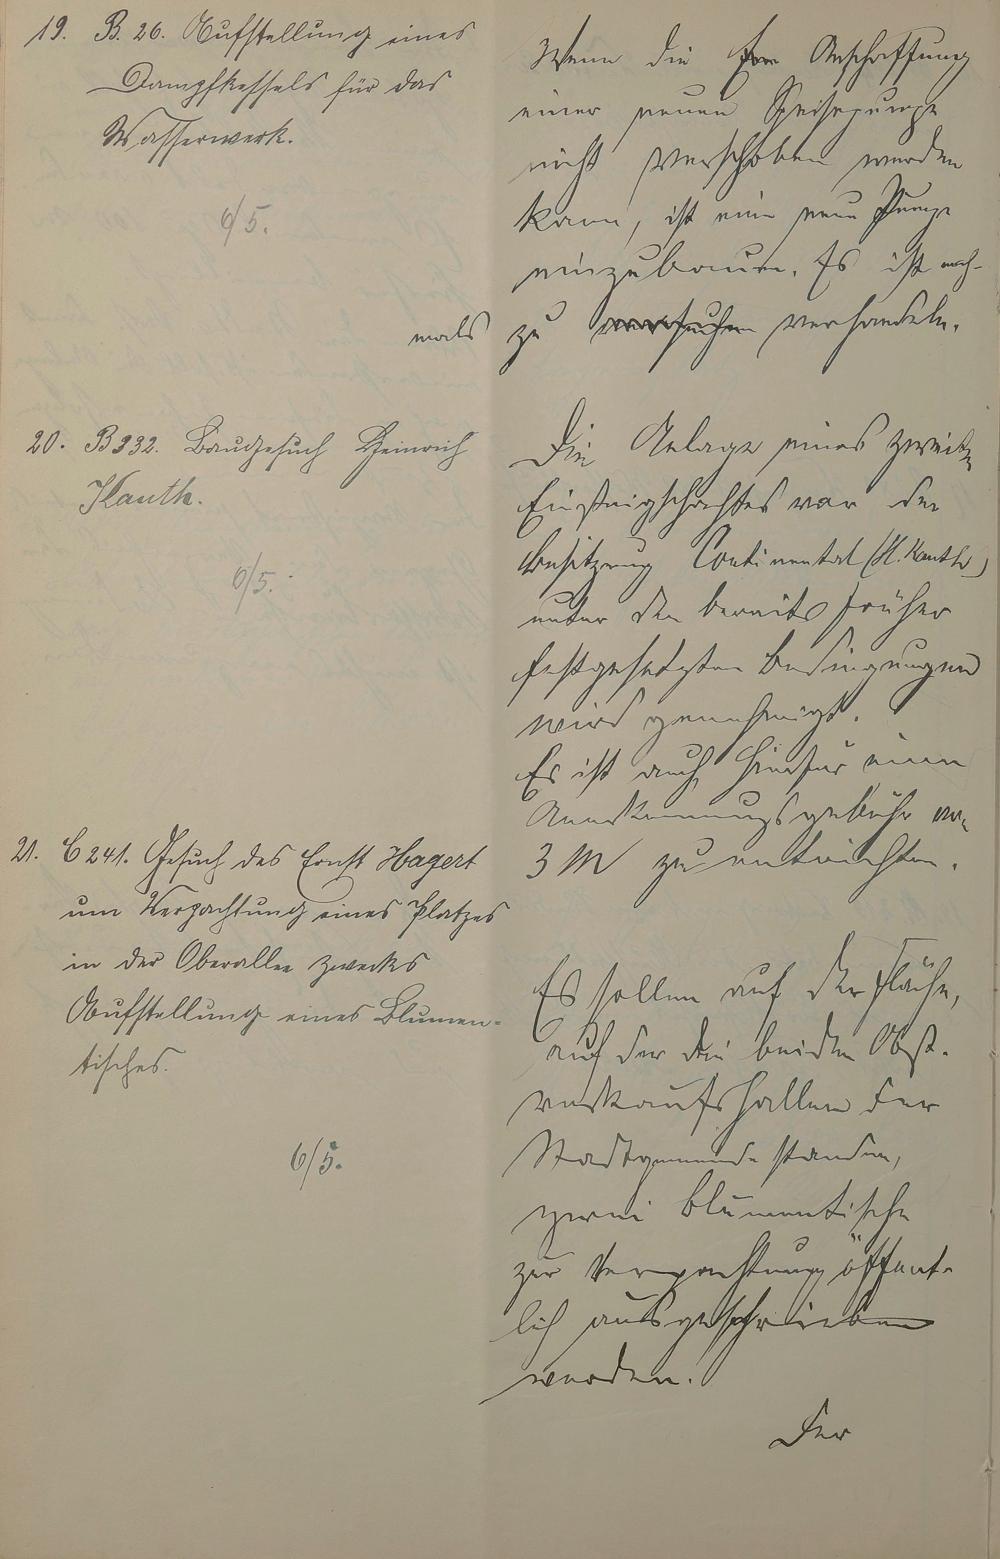 19. B. 26. Aufstellung eines
Dampfkessels für das
Wasserwerk.
6/5.
Wenn die Anschaffung
einer neuen Speisepumpe
nicht verschoben werden
kann, ist eine neue Pumpe
einzubauen. Es ist noch-
mals zu versuchen verhandeln.
20. B 932. Baugesuch Heinrich
Kauth.
6/5.
Die Anlage eines zweiten
Einsteigschachtes vor der
Besitzung Continental (H. Kauth)
unter den bereits früher
festgesetzten Bedingungen
wird genehmigt.
Es ist auch hierfür eine
Anerkennungsgebühr von
3 M zu entrichten.
21. C 241. Gesuch des Ernst Hagert
um Verpachtung eines Platzes
in der Oberallee zwecks
Aufstellung eines Blumen-
tisches.
6/5.
Es sollen auf der Fläche,
auf der die beiden Obst-
verkaufshallen der
Stadtgemeinde standen,
zwei Blumentische
zur Verpachtung öffent-
lich ausgeschrieben
werden.
Der